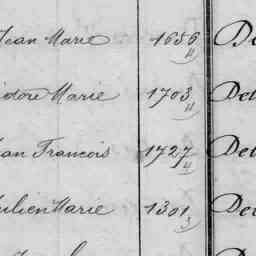 Jean Marie 1656 4 De
idore Marie 1703 4 Det
ean Francois 1727 4 Det
ulien Marie 1301 3 Det